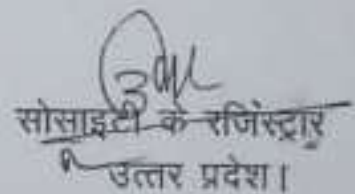 सोसाइटी के रजिंस्ट्रार
उत्तर प्रदेश।